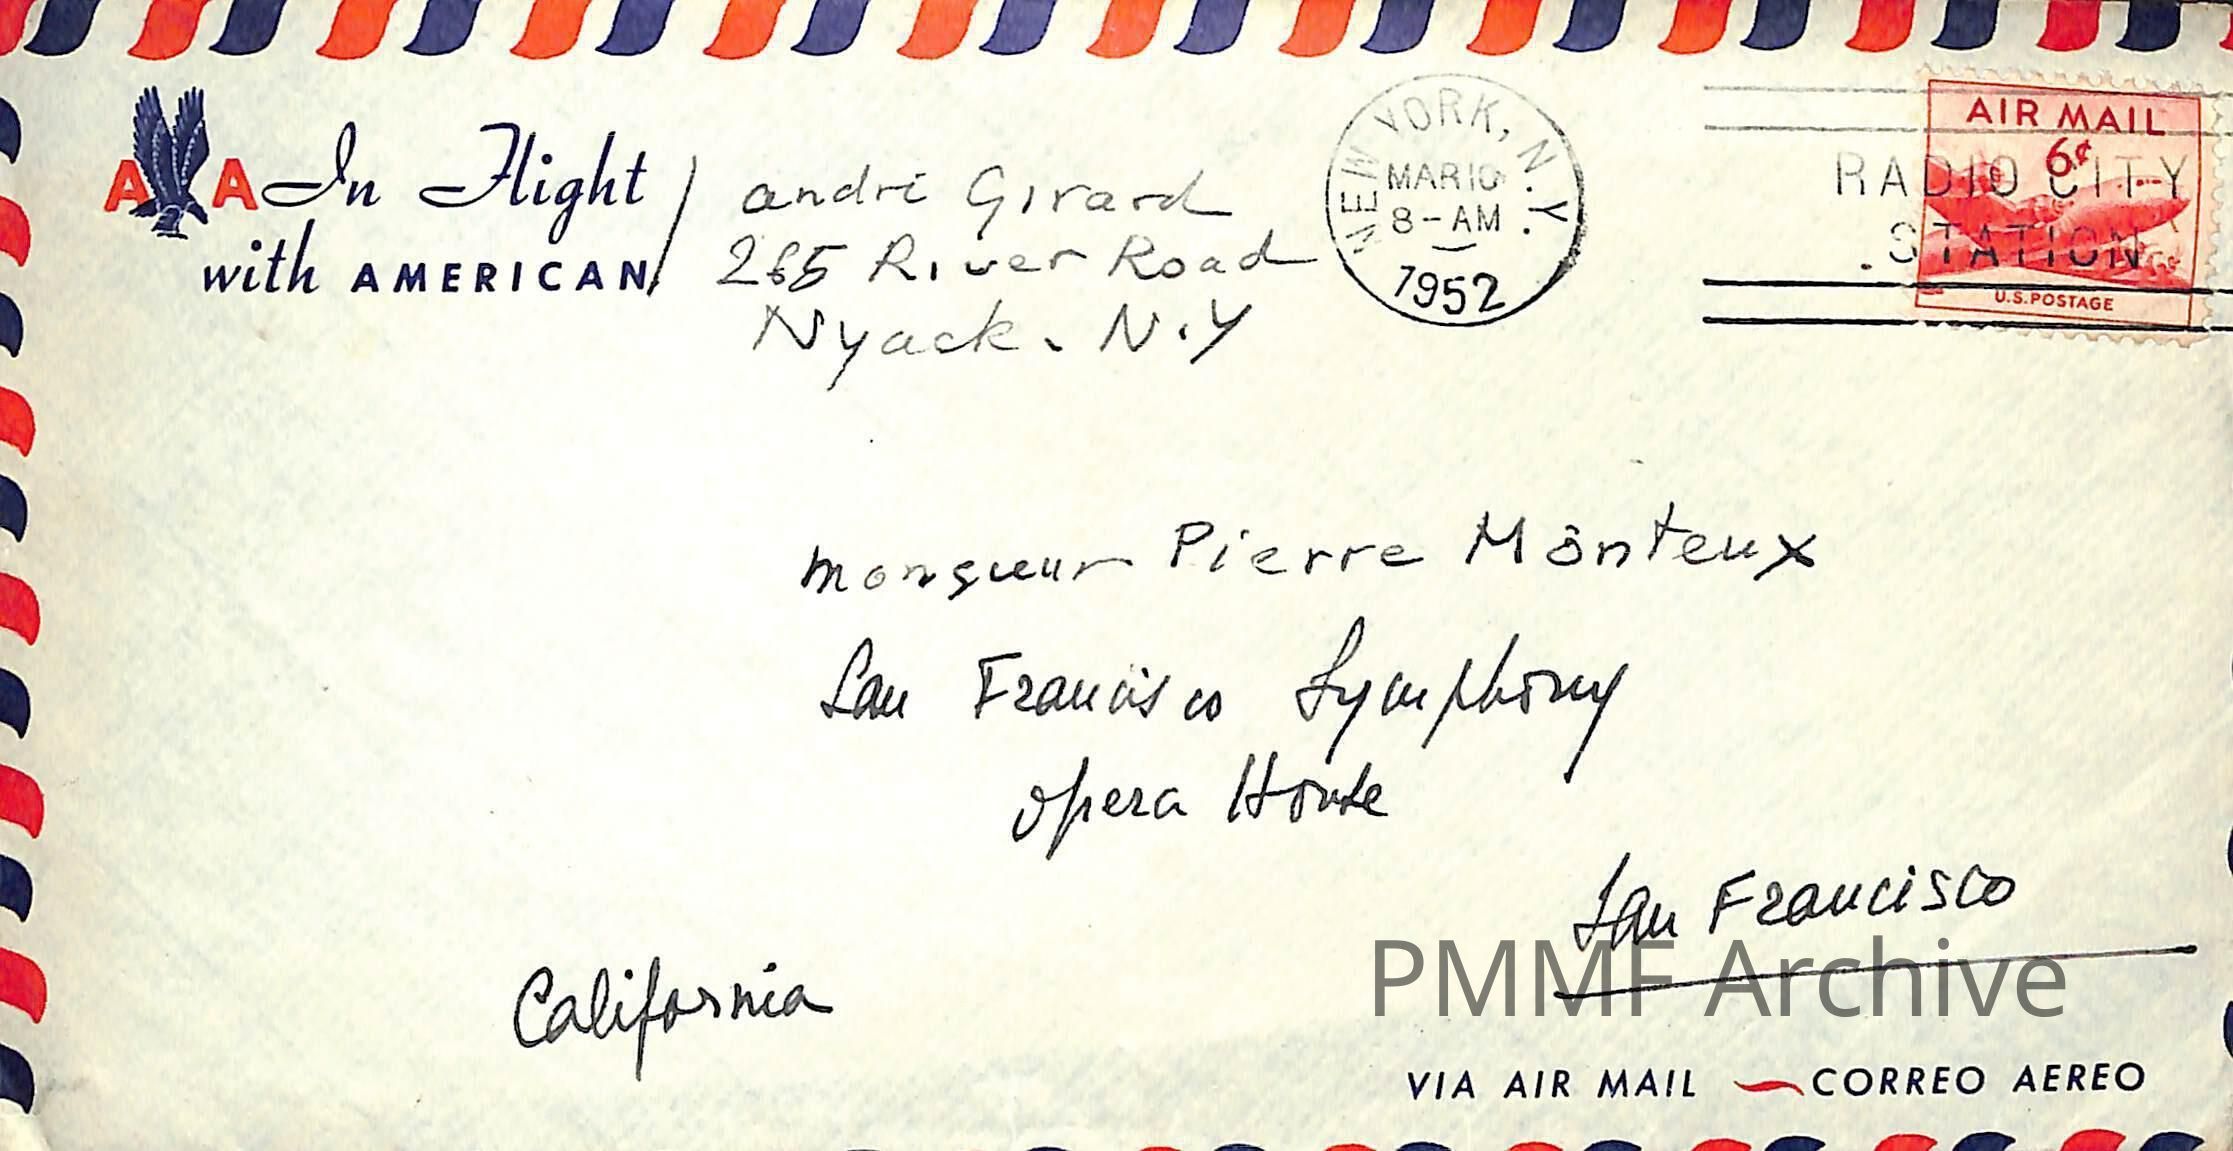 AA In Flight
with AMERICAN
andré Girard
265 River Road
Nyack. N.Y
NEW YORK, N.Y.
MAR 10
8-AM
1952
RADIO CITY
STATION
AIR MAIL
6¢
U.S. POSTAGE
monsieur Pierre Monteux
San Francisco Symphony
opera House
San Francisco
California
PMMF Archive
VIA AIR MAIL CORREO AEREO